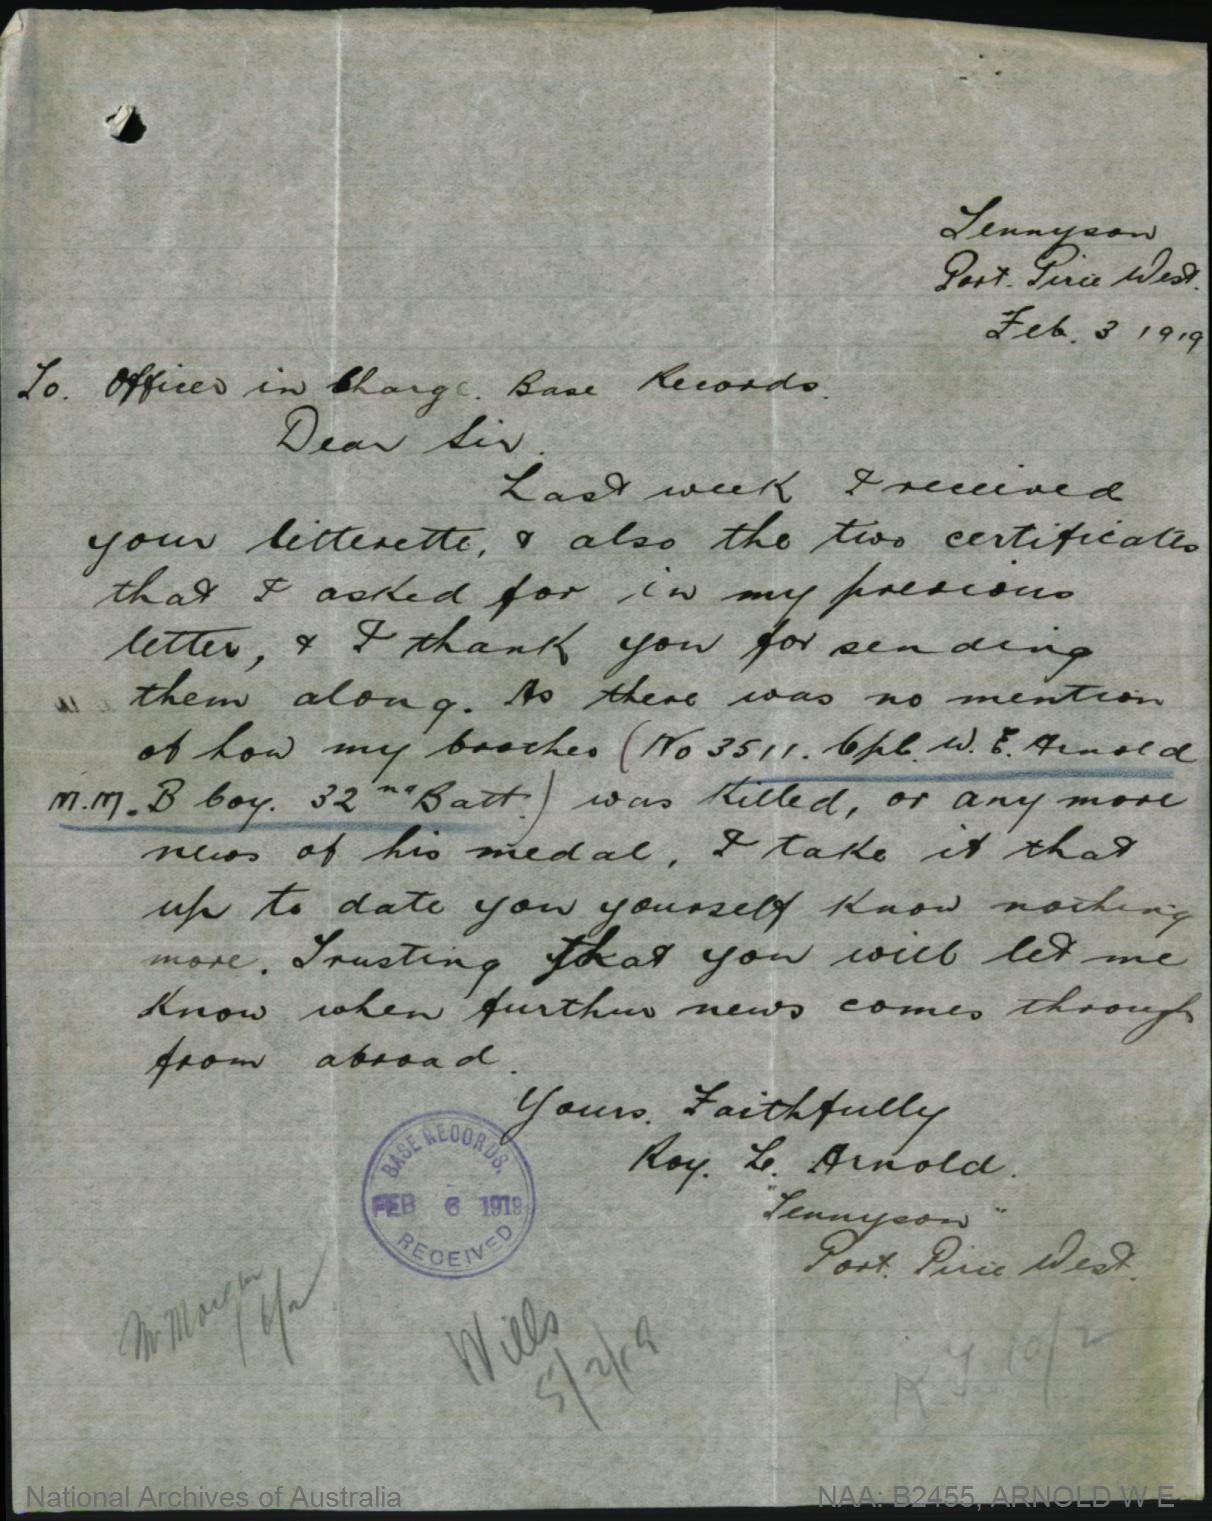 Tennyson
Port. Pirie West.
Feb. 3 1919
To. Officer in Charge. Base Records.
Dear Sir.
Last week I received
your letterette, & also the two certificates
that I asked for in my previous
letter, & I thank you for sending
them along. As there was no mention
of how my brother (No 3511. Cpl. W. E. Arnold
M.M. B Coy. 32nd Batt.) was killed, or any more
news of his medal, I take it that
up to date you yourself know nothing
more. Trusting that you will let me
know when further news comes through
from abroad.
Yours. Faithfully
Roy. L. Arnold.
"Tennyson"
Port. Pirie West.
BASE RECORDS.
FEB 6 1919
RECEIVED
Mr Morgan
6/2
Wills
5/2/19
10/2
National Archives of Australia
NAA: B2455, ARNOLD W E